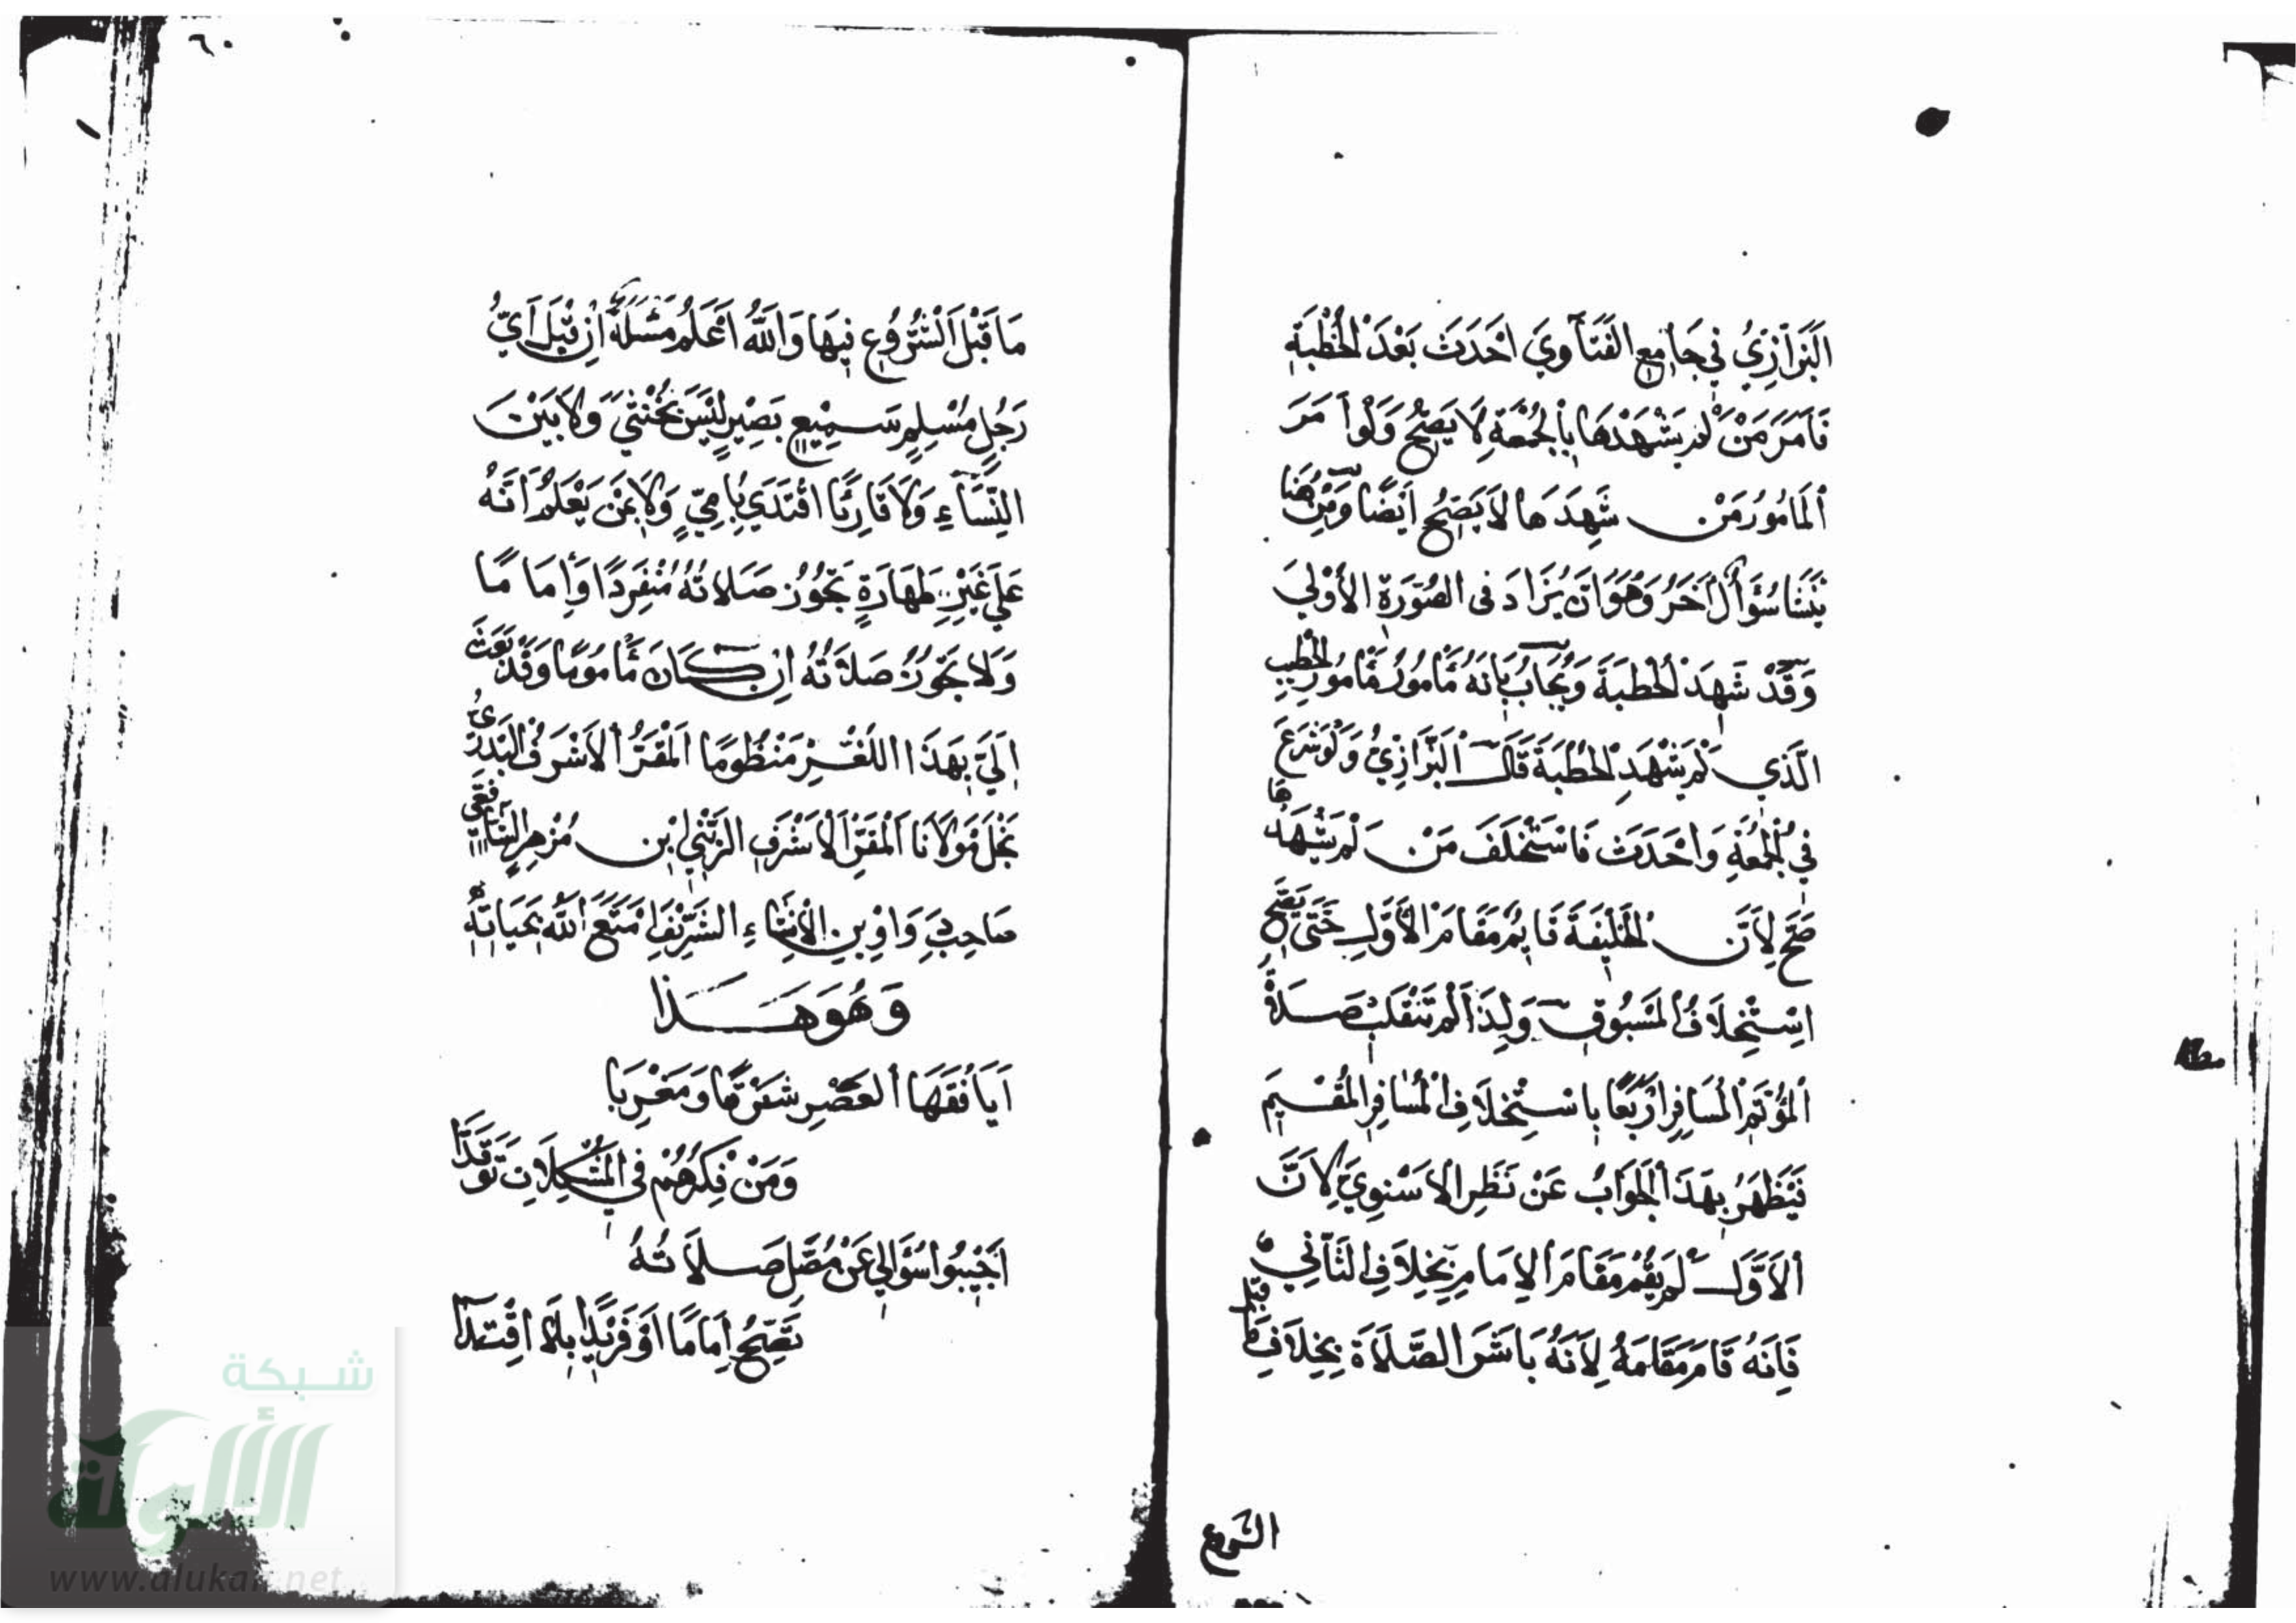 البَزَازِيُّ فِي جَامِعِ الفَتَاوِي أَحْدَثَ بَعْدَ الْخُطْبَةِ
فَأَمَرَ مَنْ لَمْ يَشْهَدْهَا بِالْجُمْعَةِ لَا يَصِحُّ وَلَوْ أَمَرَ
الْمَأْمُورُ مَنْ شَهِدَهَا لَا يَصِحُّ أَيْضًا وَمِنْ هَا
يَنْشَأُ سُؤَالٌ آخَرُ وَهُوَ أَنْ يُزَادَ فِي الصُّورَةِ الْأُولَى
وَقَدْ شَهِدَ الْخُطْبَةَ وَيُجَابُ بِأَنَّهُ مَأْمُورُ مَأْمُورِ الْخَطِيبِ
الَّذِي لَمْ يَشْهَدِ الْخُطْبَةَ قَالَ الْبَزَّازِيُّ وَلَوْ شَرَعَ
فِي الْجُمُعَةِ وَأَحْدَثَ فَاسْتَخْلَفَ مَنْ لَمْ يَشْهَدْهَا
صَحَّ لِأَنَّ الْخَلِيفَةَ قَائِمٌ مَقَامَ الْأَوَّلِ حَتَّى يَصِحَّ
اسْتِخْلَافُ الْمَسْبُوقِ وَلِذَا لَمْ تَنْقَلِبْ صَلَاةُ
الْمُؤْتَمِّ الْمُسَافِرِ أَرْبَعًا بِاسْتِخْلَافِ الْمُسَافِرِ الْمُقِيمَ
فَيَظْهَرُ بِهَذَا الْجَوَابُ عَنْ نَظَرِ الْأَسْنَوِيِّ لِأَنَّ
الْأَوَّلَ لَمْ يَقُمْ مَقَامَ الْإِمَامِ بِخِلَافِ الثَّانِي
فَإِنَّهُ قَامَ مَقَامَهُ لِأَنَّهُ بَاشَرَ الصَّلَاةَ بِخِلَافِ مَا قَبْلَ
الشروع
٦٠
مَا قَبْلَ الشُّرُوعِ فِيهَا وَاللَّهُ أَعْلَمُ مَسْئَلَةٌ إِنْ قِيلَ أَيُّ
رَجُلٍ مُسْلِمٍ سَمِيعٍ بَصِيرٍ لَيْسَ بِخُنْثَى وَلَا بَيْنَ
النِّسَاءِ وَلَا قَارِئًا اقْتَدَى بِأُمِّيٍّ وَلَا بِمَنْ يَعْلَمُ أَنَّهُ
عَلَى غَيْرِ طَهَارَةٍ تَجُوزُ صَلَاتُهُ مُنْفَرِدًا وَإِمَامًا
وَلَا تَجُوزُ صَلَاتُهُ إِنْ كَانَ مَأْمُومًا وَقَدْ بَعَثَ
إِلَيَّ بِهَذَا اللُّغْزِ مَنْظُومًا الْمَقَرُّ الْأَشْرَفُ الْبَدْرِيُّ
نَجْلُ مَوْلَانَا الْمَقَرِّ الْأَشْرَفِ الزَّيْنِيِّ ابْنِ مُزْهِرٍ الشَّافِعِيِّ
صَاحِبِ دَوَاوِينِ الْإِنْشَاءِ الشَّرِيفِ مَتَّعَ اللَّهُ بِحَيَاتِهِ
وَهُوَ هَذَا
أَيَا فُقَهَا الْعَصْرِ شَرْقًا وَمَغْرِبَا
وَمَنْ فِكْرُهُمْ فِي الْمُشْكِلَاتِ تَوَقَّدَا
أَجِيبُوا سُؤَالِي عَنْ مُصَلٍّ صَلَاتُهُ
تَصِحُّ إِمَامًا أَوْ فَرِيدًا بِلَا اقْتِدَا
شبكة
الألوكة
www.alukah.net